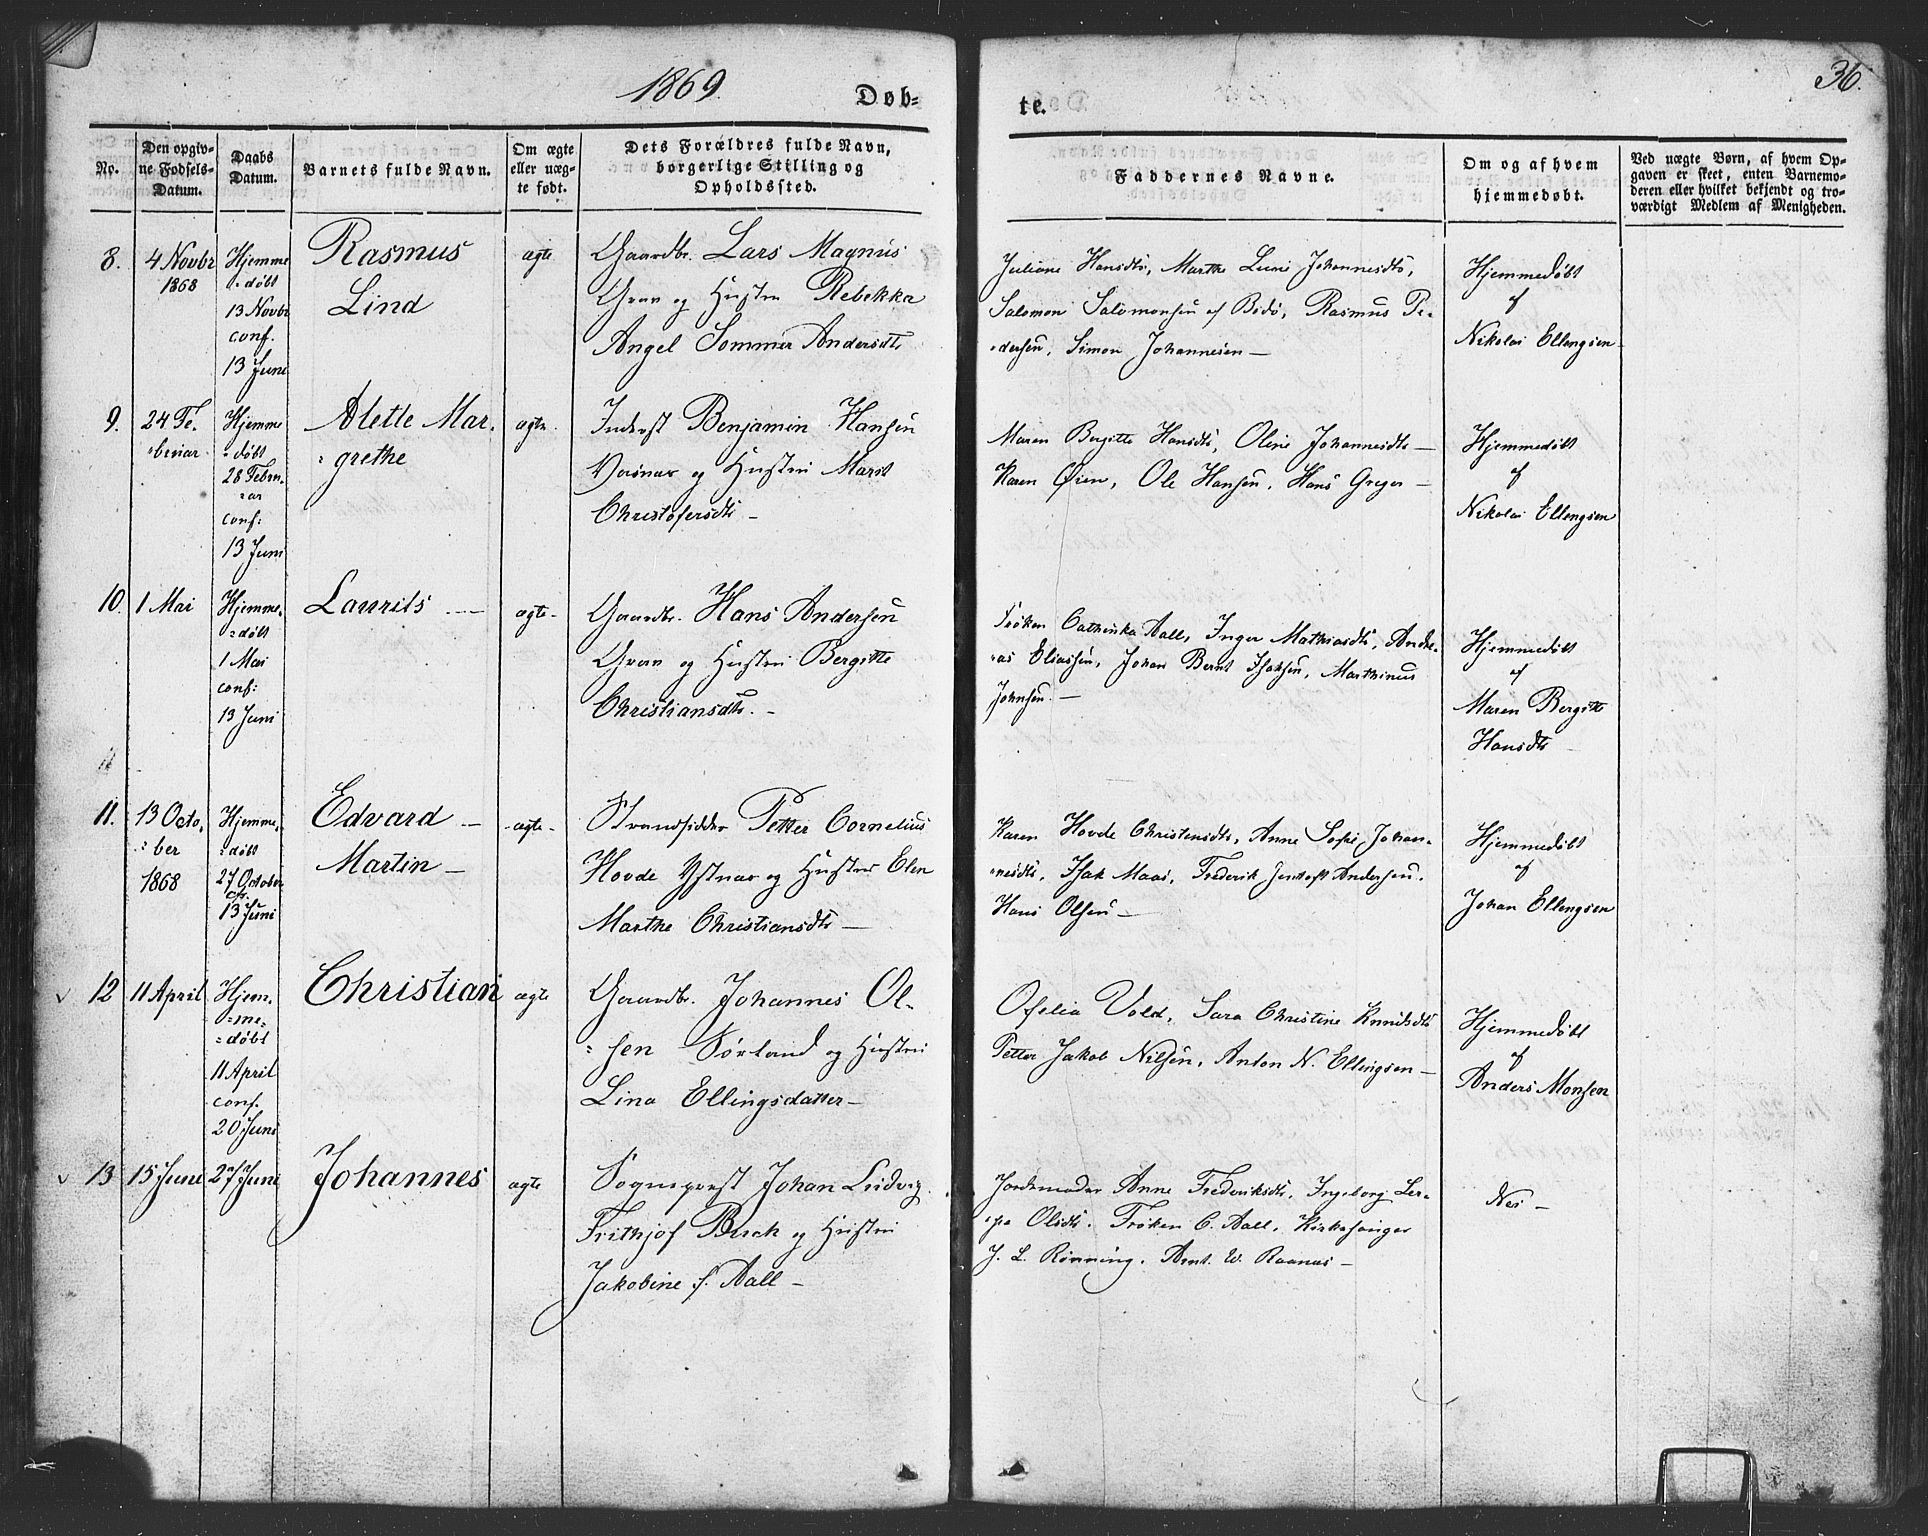 1869
Døb-
te.
36.
No.
Den opgiv-
ne Fødsels-
Datum.
Daabs
Datum.
Barnets fulde Navn.
Om ægte
eller uæg-
te født.
Dets Forældres fulde Navn,
borgerlige Stilling og
Opholdssted.
Faddernes Navne.
Om og af hvem
hjemmedøbt.
Ved uægte Børn, af hvem Op-
gaven er skeet, enten Barnemo-
deren eller hvilket bekjendt og tro-
værdigt Medlem af Menigheden.
8.
4 Novbr
1868
Hjemme
=døbt
13 Novbr
conf.
13 Juni
Rasmus
Lind
ægte
Gaardbr. Lars Magnus
og Hustru Rebekka
Angel Sommer Andersdtr
Juliane Hansdtr, Marthe Johannesdtr,
Salomon Salomonsen af Bodø, Rasmus Pe-
=dersen, Simon Johannesen —
Hjemmedøbt
af
Nikolai Ellengsen
9.
24 Fe.
=bruar
Hjemme
=døbt
28 Febru-
=ar
conf:
13 Juni
Alette Mar.
=grethe
ægte.
Inderst Benjamin Hansen
og Hustru Marit
Christofersdtr —
Maren Bergitte Hansdtr, Oline Johannesdtr —
Karen Øien, Ole Hansen, Hans Greger —
Hjemmedøbt
af
Nikolai Ellengsen
10.
1 Mai
Hjemme-
=døbt
1 Mai
conf:
13 Juni
Laurits —
ægte-
Gaardbr. Hans Andersen
og Hustru Bergitte
Christiansdtr. —
Frøken Cathinka Aall, Inger Mathiasdtr, Andre-
=as Eliassen, Johan Bernt Isaksen, Marthinus
Johnsen. —
Hjemmedøbt
af
Maren Bergitte
Hansdtr —
11.
13 Octo.
=ber
1868
Hjemme-
=døbt
27 October
cf.
13 Juni
Edvard —
Martin —
-ægte-
Strandsidder Petter Cornelius
Hovde Ystnes og Hustru Elen
Marthe Christiansdtr —
Karen Hovde Christensdtr, Anne Sofie Johan-
=nesdtr, Isak Maas, Frederik Jentoft Andersen.
Hans Olsen —
Hjemmedøbt
af
Johan Ellengsen
v 12
11 April
Hjem-
=me-
=døbt
11 April
conf.
20 Juni
Christian
ægte
Gaardbr. Johannes Ol-
=sen Sørland og Hustru
Lina Ellingsdatter —
Ofelia Vold, Sara Christine Knudsdtr
Petter Jakob Nilsen, Anton N. Ellingsen —
Hjemmedøbt
af
Anders Monsen
v 13
15 Juni
27 Juni
Johannes
ægte
Sognepræst Johan Ludvig
Frithjof Buck og Hustru
Jakobine f. Aall —
Jordemoder Anne Frederiksdtr, Ingeborg
Olsdtr. Frøken C. Aall, Kirkesanger
J. L. Rønning. Arnt. W. —
Nei —